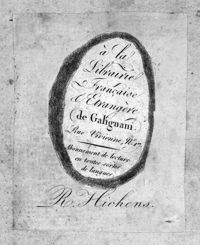 à la
Librairie
Française
& Etrangère
de Galignani.
Rue Vivienne, N.º
Abonnement de lecture
en toutes sortes
de langues
R. Hichens.